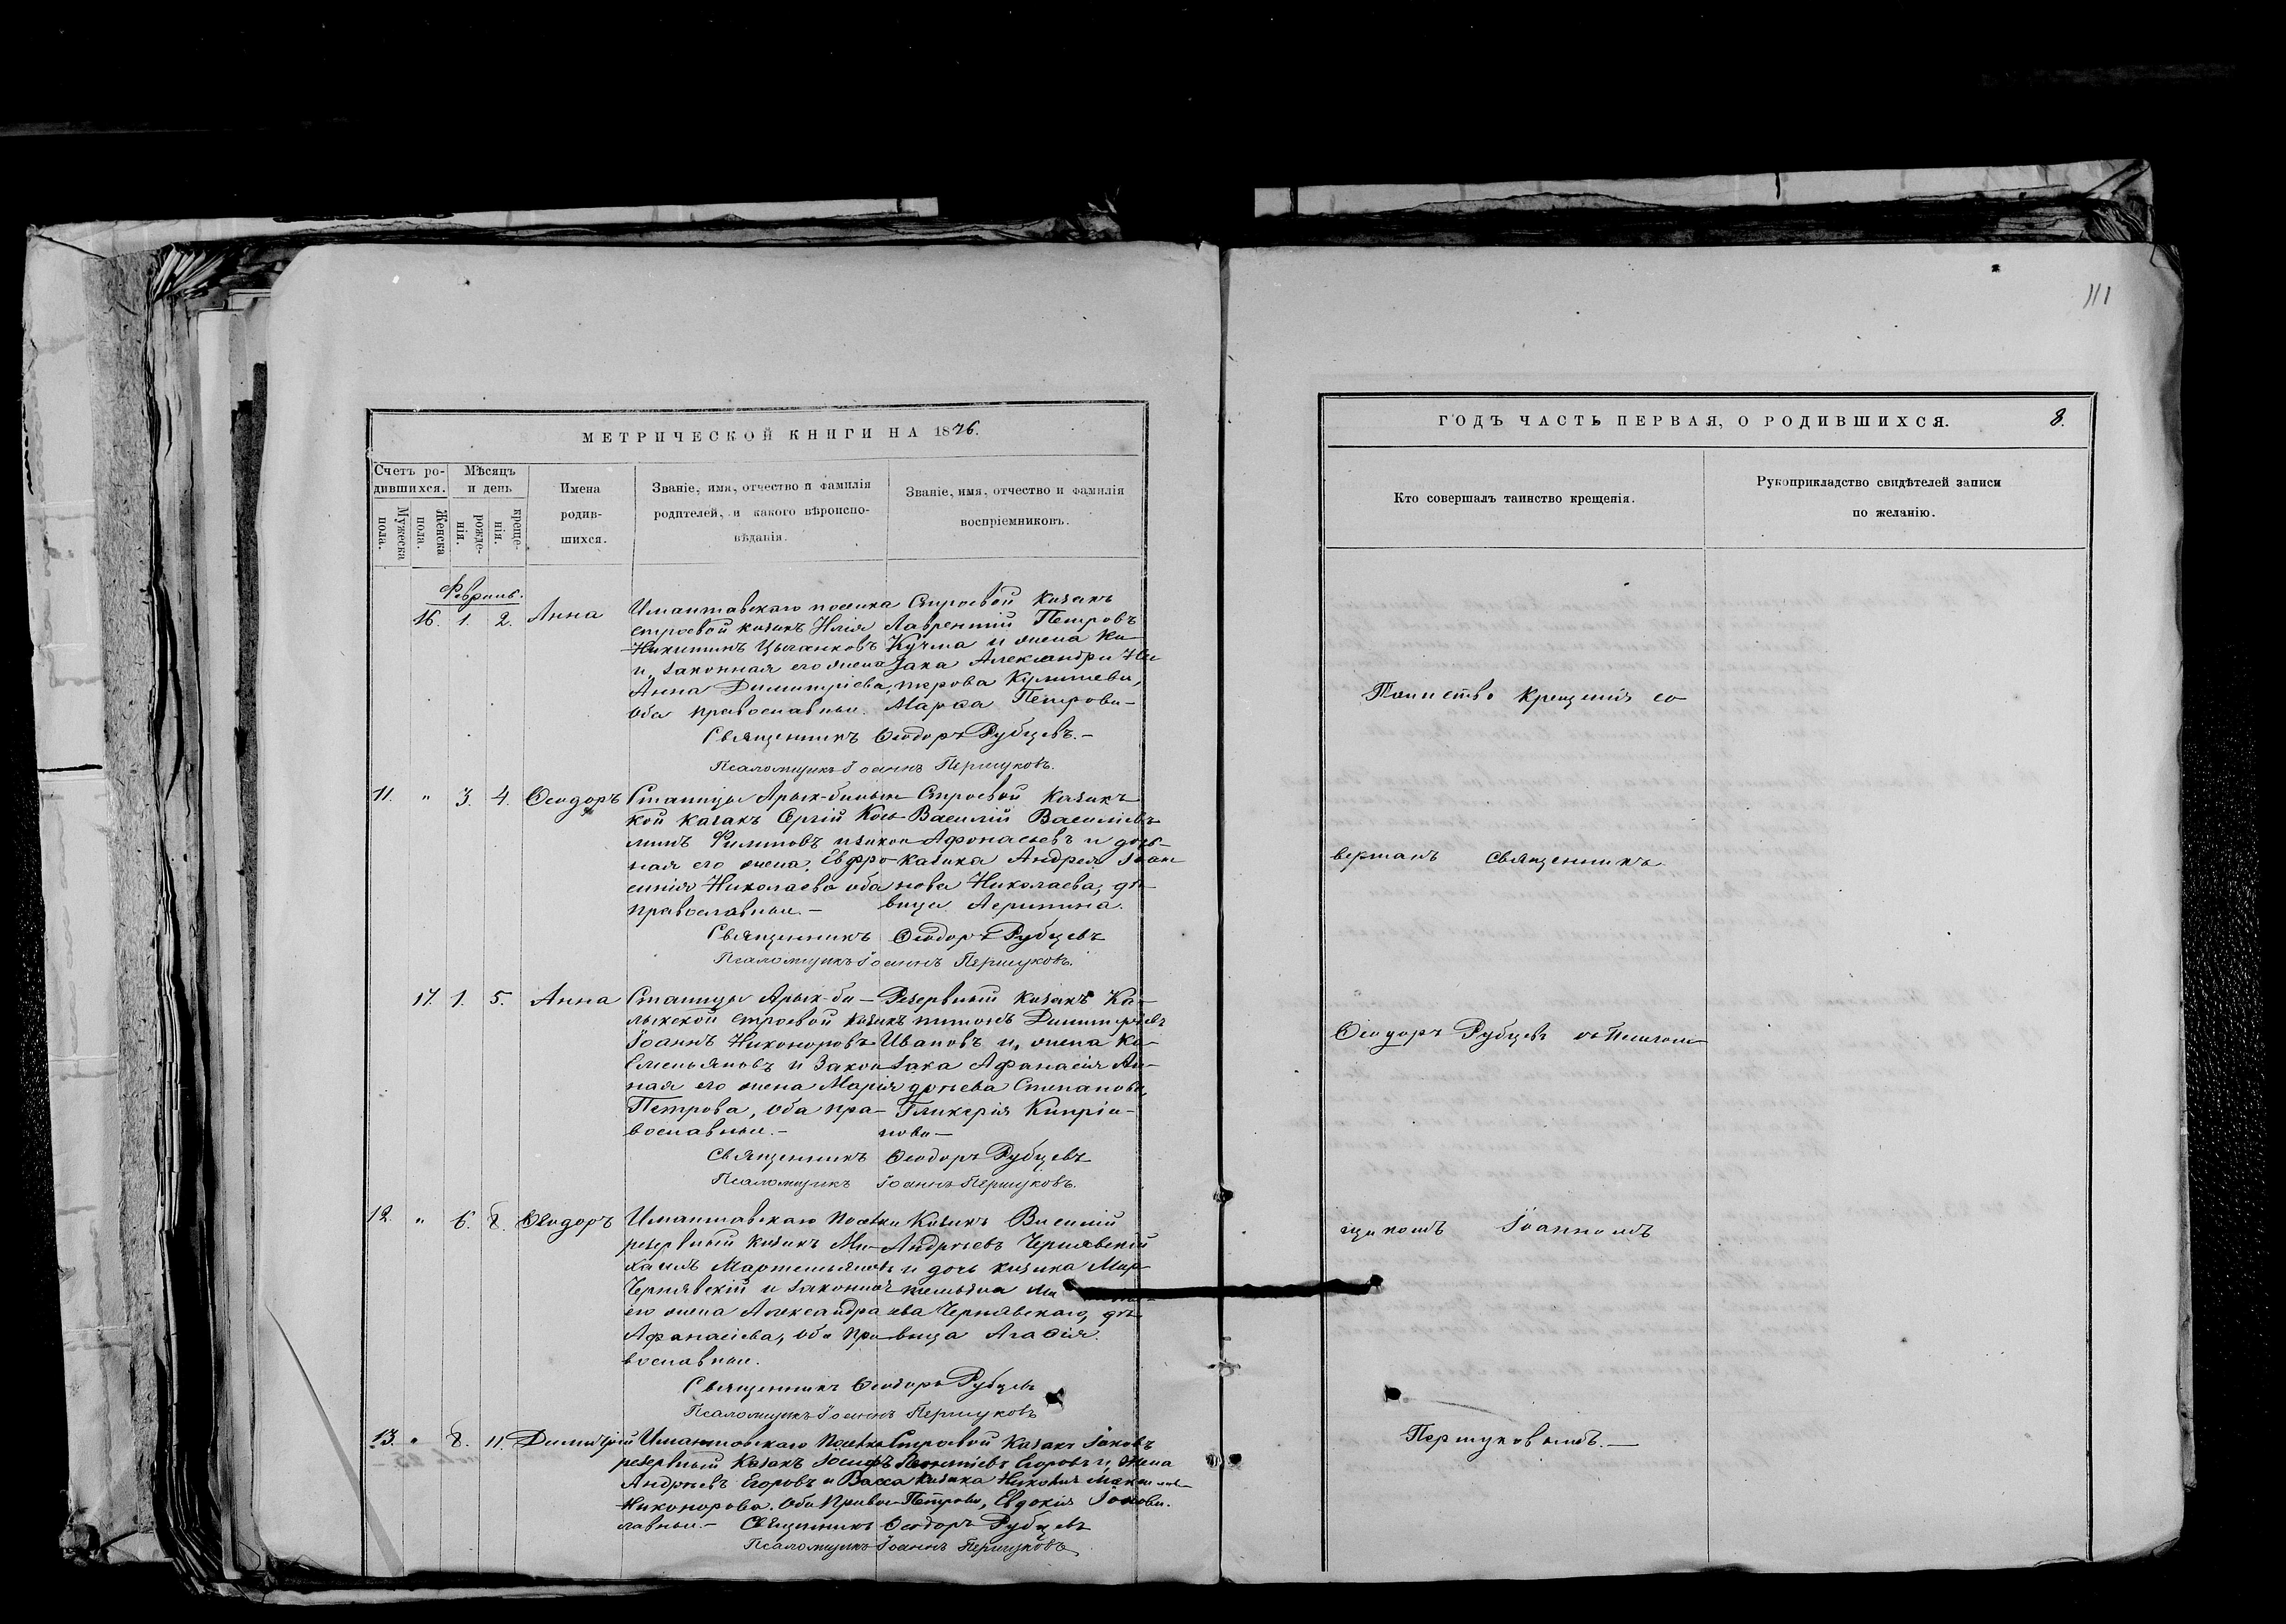 111
МЕТРИЧЕСКОЙ КНИГИ НА 1876.
Счетъ ро-
дившихся.
Мужеска
пола.
Женска
пола.
Мѣсяцъ
и день
рожде-
нія.
креще-
нія.
Имена
родив-
шихся.
Званіе, имя, отчество и фамилія
родителей, и какого вѣроиспо-
вѣданія.
Званіе, имя, отчество и фамилія
воспріемниковъ.
Февраль.
16. 1. 2. Анна
Имантавскаго поселка
строевой казакъ Илія
Никитинъ Цыганковъ
и законная его жена
Анна Димитріева,
оба православные.
Строевой казакъ
Лаврентій Петровъ
Кучма и жена ка-
зака Александра
Марѳа Петрова
Священникъ Ѳеодоръ Рубцевъ.
Псаломщикъ Іоаннъ Першуковъ.
11. " 3. 4. Ѳеодоръ
Станицы Арык-балык-
кой казакъ Сергій Кось-
минъ Филиповъ и закон-
ная его жена Евфро-
синія Николаева оба
православные.
Строевой казакъ
Василій Василіевъ
Афонасьевъ и дочь
казака Андрея Іоан-
нова Николаева, дѣ-
вица
Священникъ Ѳеодоръ Рубцевъ
Псаломщикъ Іоаннъ Першуковъ.
17. 1. 5. Анна
Станицы Арык-ба-
лыкской строевой казакъ
Іоаннъ Никоноровъ
Емельяновъ и закон-
ная его жена Марія
Петрова, оба пра-
вославные.
Резервный казакъ Ка-
питонъ Димитріевъ
Ивановъ и жена ка-
зака Афанасія Ан-
дреева Степанова,
Гликерія Кипріа-
нова
Священникъ Ѳеодоръ Рубцевъ
Псаломщикъ Іоаннъ Першуковъ.
12. " 6. 8. Ѳеодоръ
Имантавскаго поселка
резервный казакъ Ми-
хаилъ Мартемьяновъ
Чернявскій и законная
его жена Александра
Афанасіева, оба пра-
вославные.
Казакъ Василій
Андреевъ Чернявскій
и дочь казака Мар-
темьяна
ева Чернявскаго, дѣ-
вица Агаѳія.
Священникъ Ѳеодоръ Рубцевъ
Псаломщикъ Іоаннъ Першуковъ
13. " 8. 11. Димитрій
Имантовскаго поселка
резервный казакъ Іосифъ
Андреевъ Егоровъ и Васса
Никонорова. оба правос-
лавные.
Строевой казакъ Іаковъ
Егоровъ и жена
казака
Петрова, Евдокія
Священникъ Ѳеодоръ Рубцевъ
Псаломщикъ Іоаннъ Першуковъ
ГОДЪ ЧАСТЬ ПЕРВАЯ, О РОДИВШИХСЯ.
8.
Кто совершалъ таинство крещенія.
Рукоприкладство свидѣтелей записи
по желанію.
Таинство крещенія со
вершалъ священникъ
Ѳеодоръ Рубцевъ съ псалом-
щикомъ Іоанномъ
Першуковымъ.